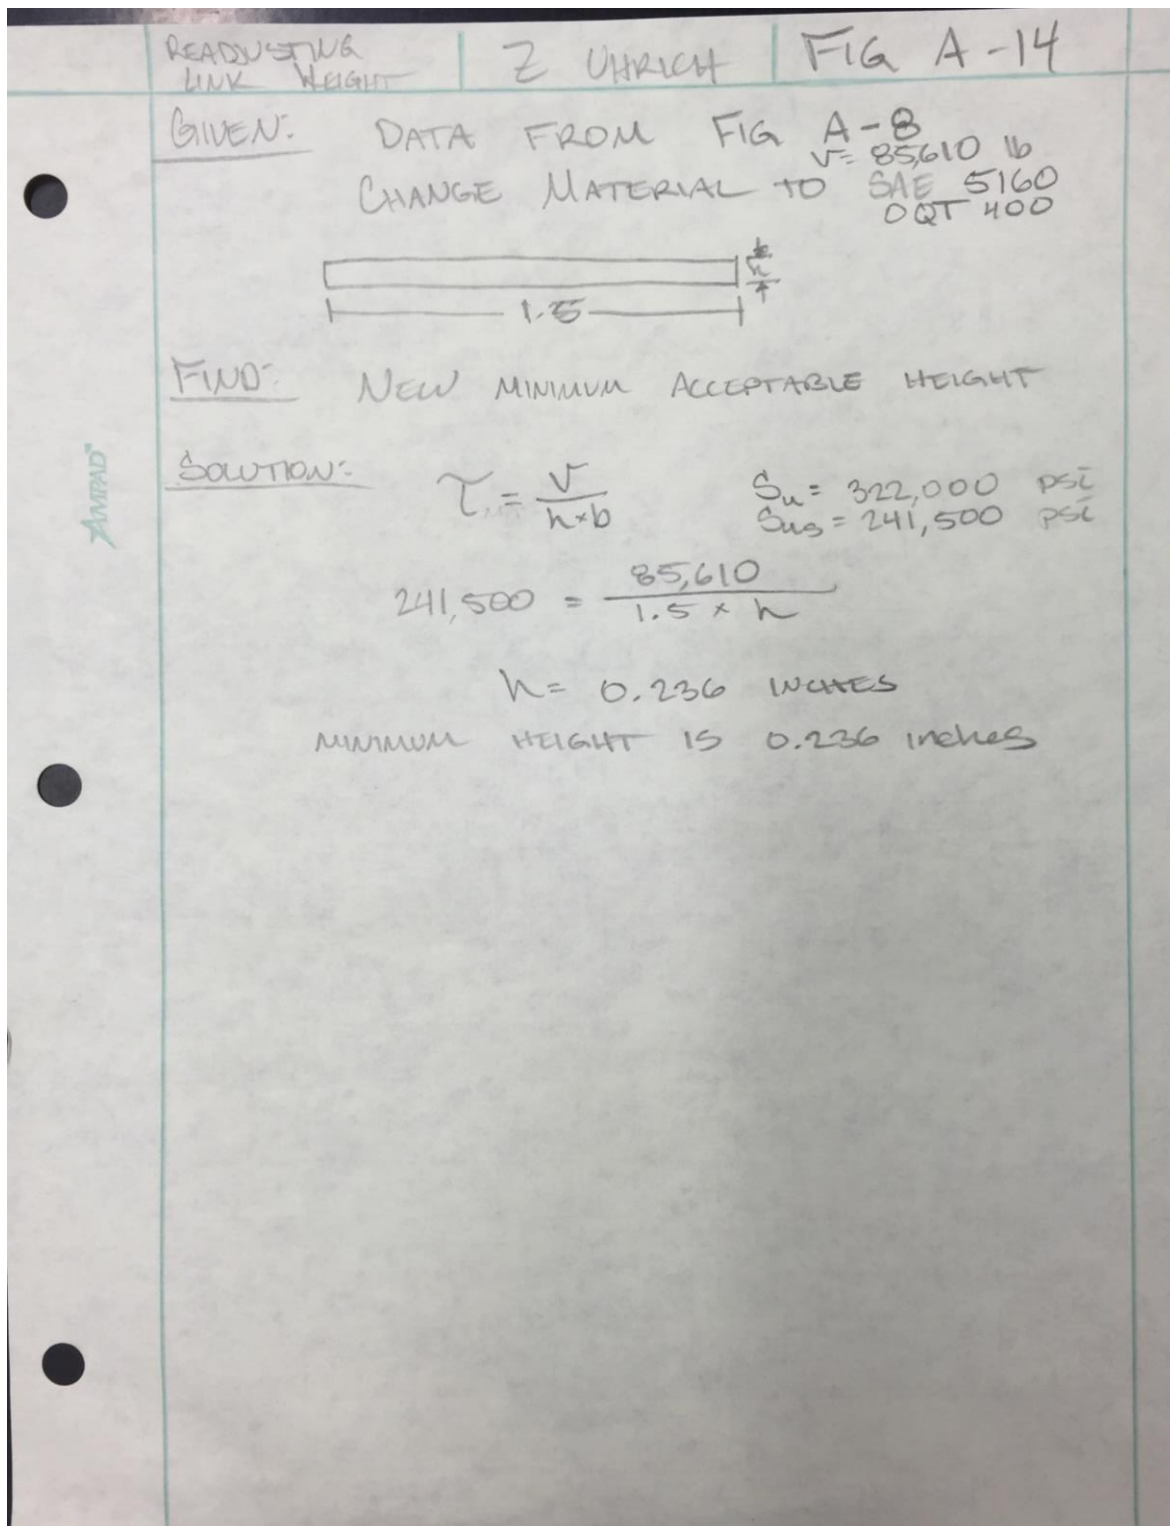 READJUSTING
LINK WEIGHT
Z UHRICH
FIG A-14
GIVEN:
DATA FROM FIG A-8
V= 85,610 lb
CHANGE MATERIAL TO SAE 5160
OQT 400
h
1.5
FIND:
NEW MINIMUM ACCEPTABLE HEIGHT
AMPAD™
SOLUTION:
τ = V / h×b
Su = 322,000 psi
Sus = 241,500 psi
241,500 = 85,610 / 1.5 × h
h= 0.236 INCHES
MINIMUM HEIGHT IS 0.236 inches